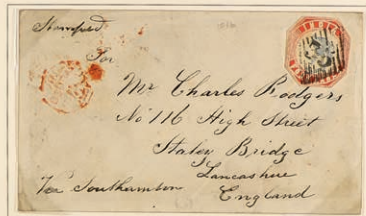 Stamped
For
INDIA
Mr Charles Rodgers
No 116 High Street
Staley Bridge
Lancashire
Via Southamton
England